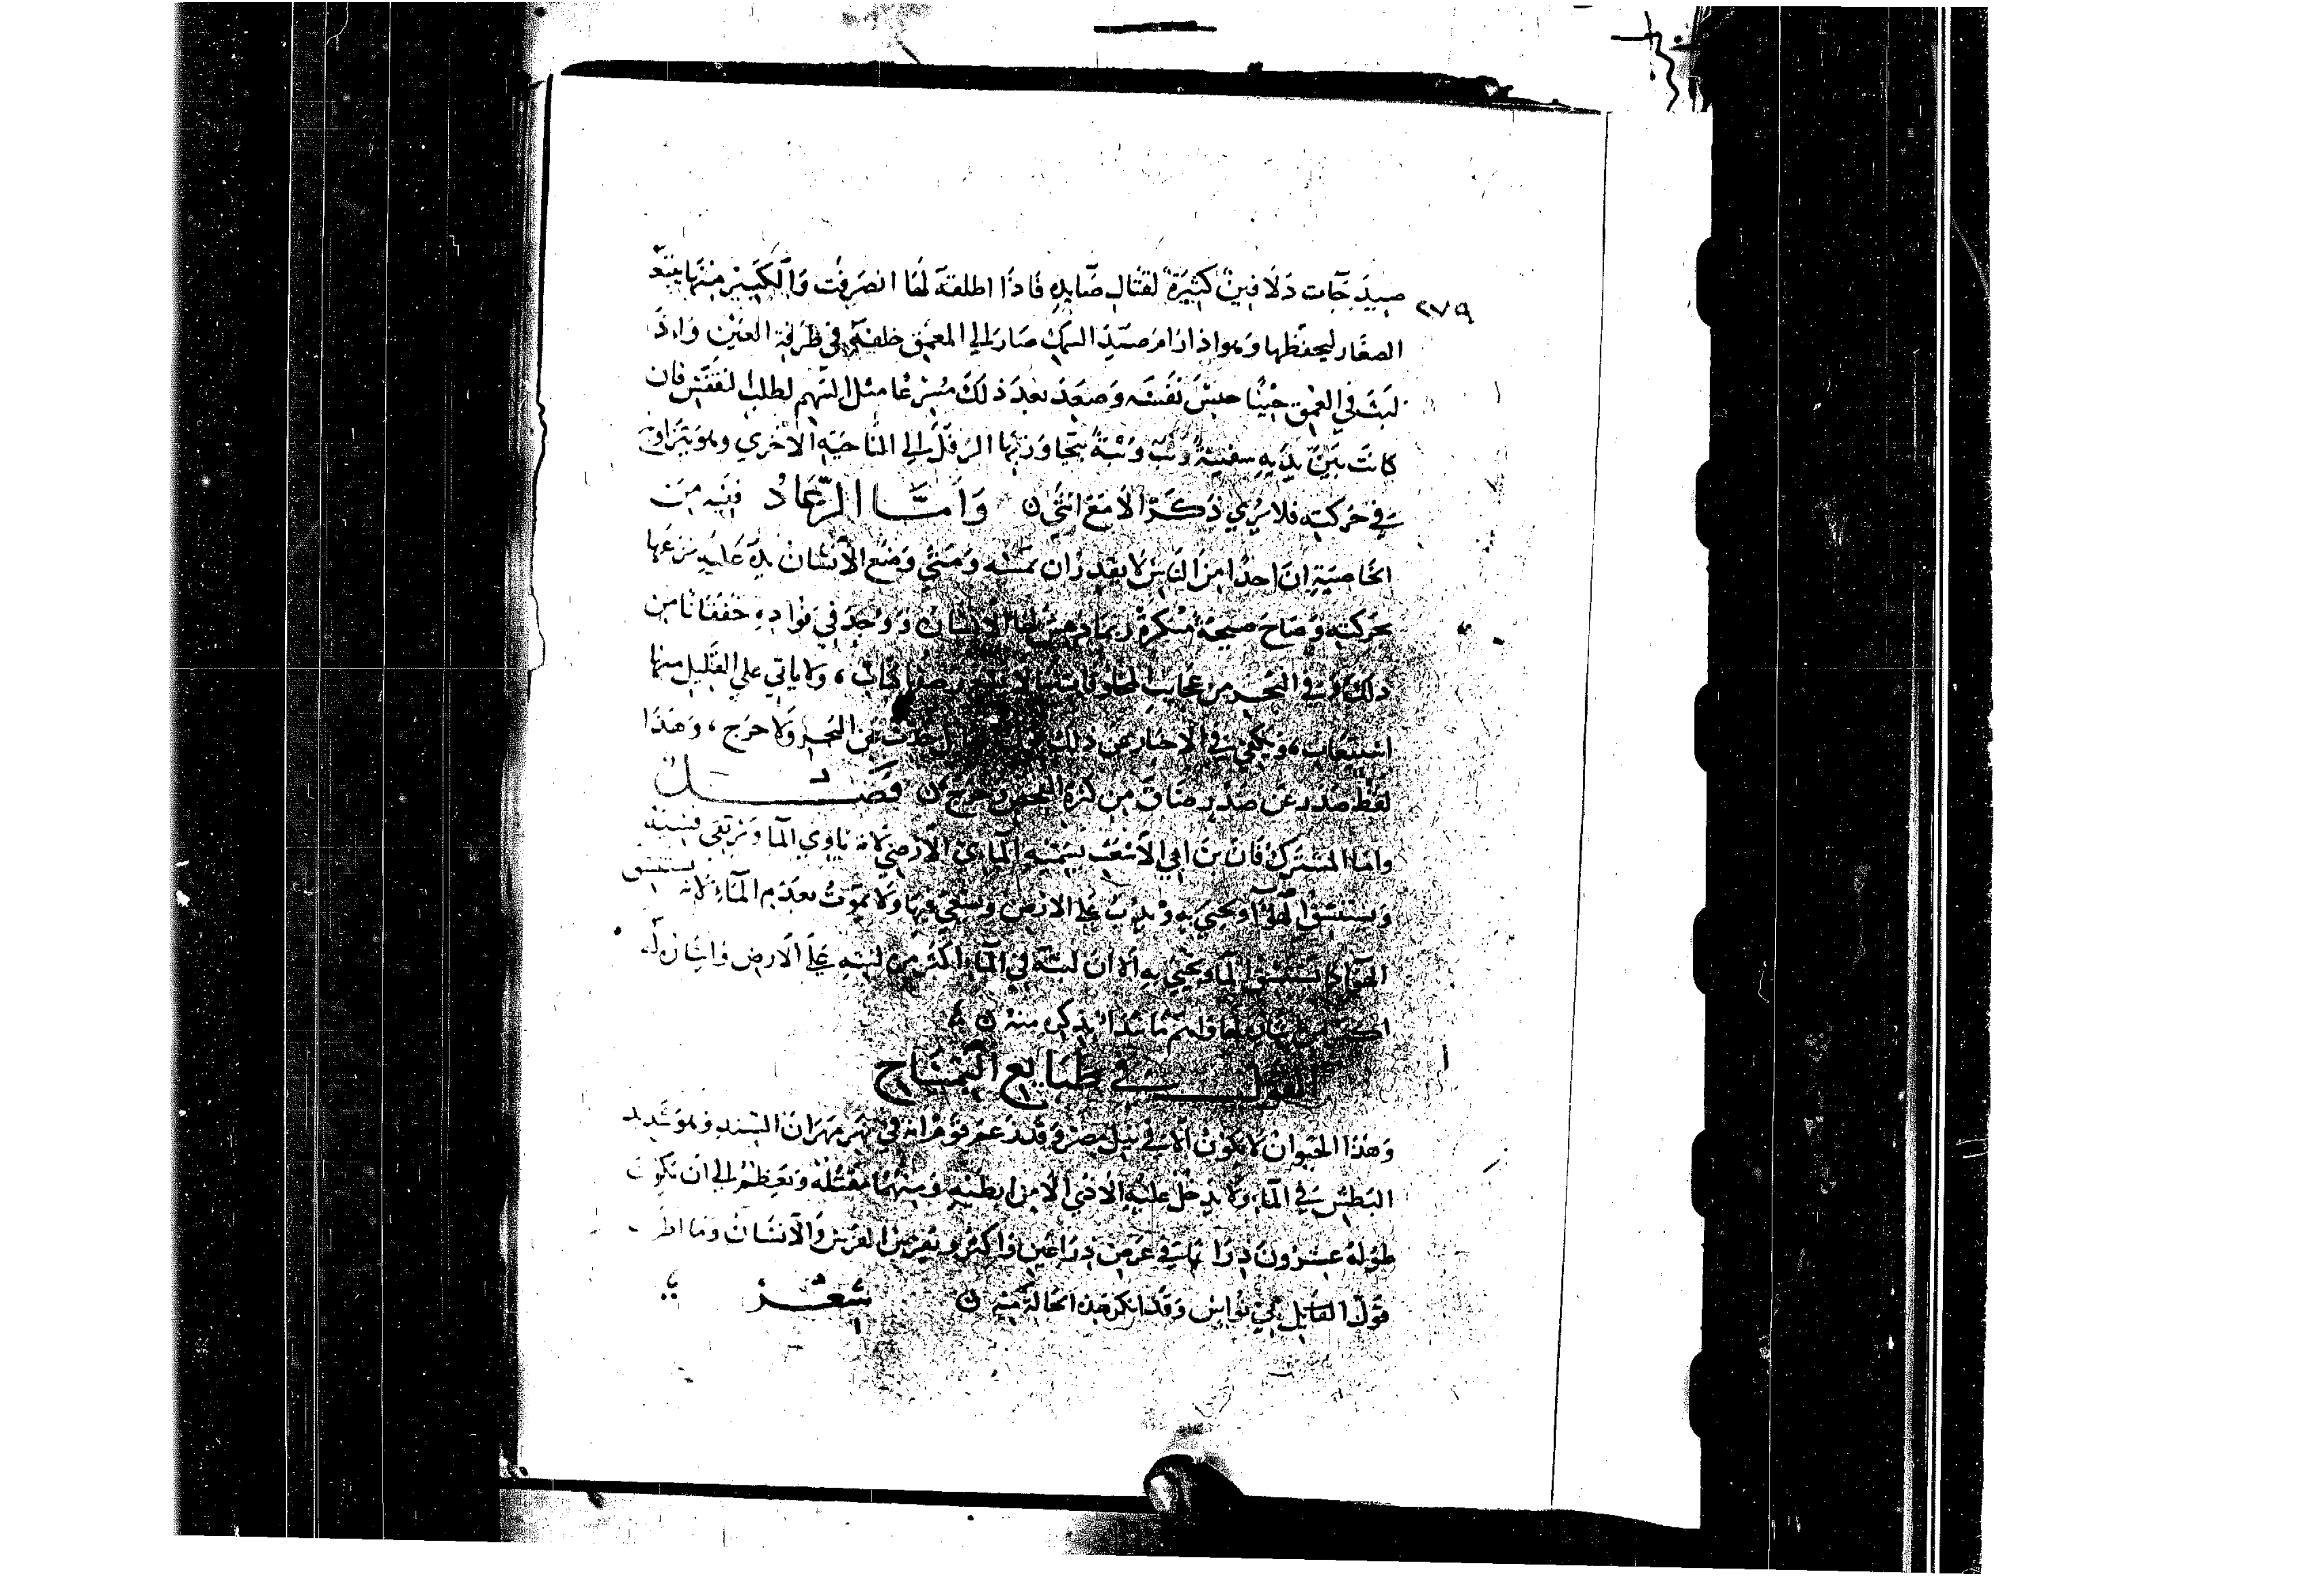 ٢٧٩
صيد جآت دلافين كثيرة لقتال صايده فاذا اطلقه لها انصرفت والكبير منها يتبع
الصغار ليحفظها وهو اذا رام صيد السمك صار الي العمق خلفه في طرفة العين واذا
لبث في العمق حينا حبس نفسه وصعد بعد ذلك مسرعا مثل السهم لطلب التنفس فان
كانت بين يديه سفينة وثب وثبة يتجاوز بها الدقل الي الناحية الاخري وهو يتراوح
في حركته فلا يري ذكر الا مع انثي ن وأمّا الرّعّاد ففيه من
الخاصية ان احدا من الناس لا يقدر ان يمسه ومتي وضع الانسان يده عليه نزعها
بحركته وصاح صيحة منكرة ربما دهش لها الانسان ووجد في فواده خفقانا من
ذلك وفي البحر من عجايب المخلوقات ما لا كتاب، ولا ياتي علي القليل منها
استيعاب، ويكفي في الاخبار عن ذلك حدث عن البحر ولا حرج، وهذا
لفظ صدر عن صدر ضاق من كثرة وحرج ن فصل
واما المشترك فان بن ابي الاشعث يسميه المايي الارضي لانه ياوي الما ويرتقي فيه
ويستنشق الهوا ويحيي به ويدب علي الارض ويبقي فيها ولا يموت بعدم الماء لانه يستنشق
الهوا كما يستنشق الما ويحيي به الا ان لبثه في الماء اكثر من لبثه علي الارض وايثاره له
اكثر من ايثاره لها واهم ما بدا بذكره منه ن
القول في طبايع التمساح
وهذا الحيوان لا يكون الا في نيل مصر وقد زعم قوم انه في نهر مهران السند وهو شديد
البطش في الماء ولا يدخل عليه الاذي الا من ابطيه ومنهما مقتله ويعظم الي ان يكون
طوله عشرون ذراعا في عرض ذراعين واكثر ويفترس الفرس والانسان وما
قول القايل ابي نواس وقد انكر هذه الحالة منه ن شعر